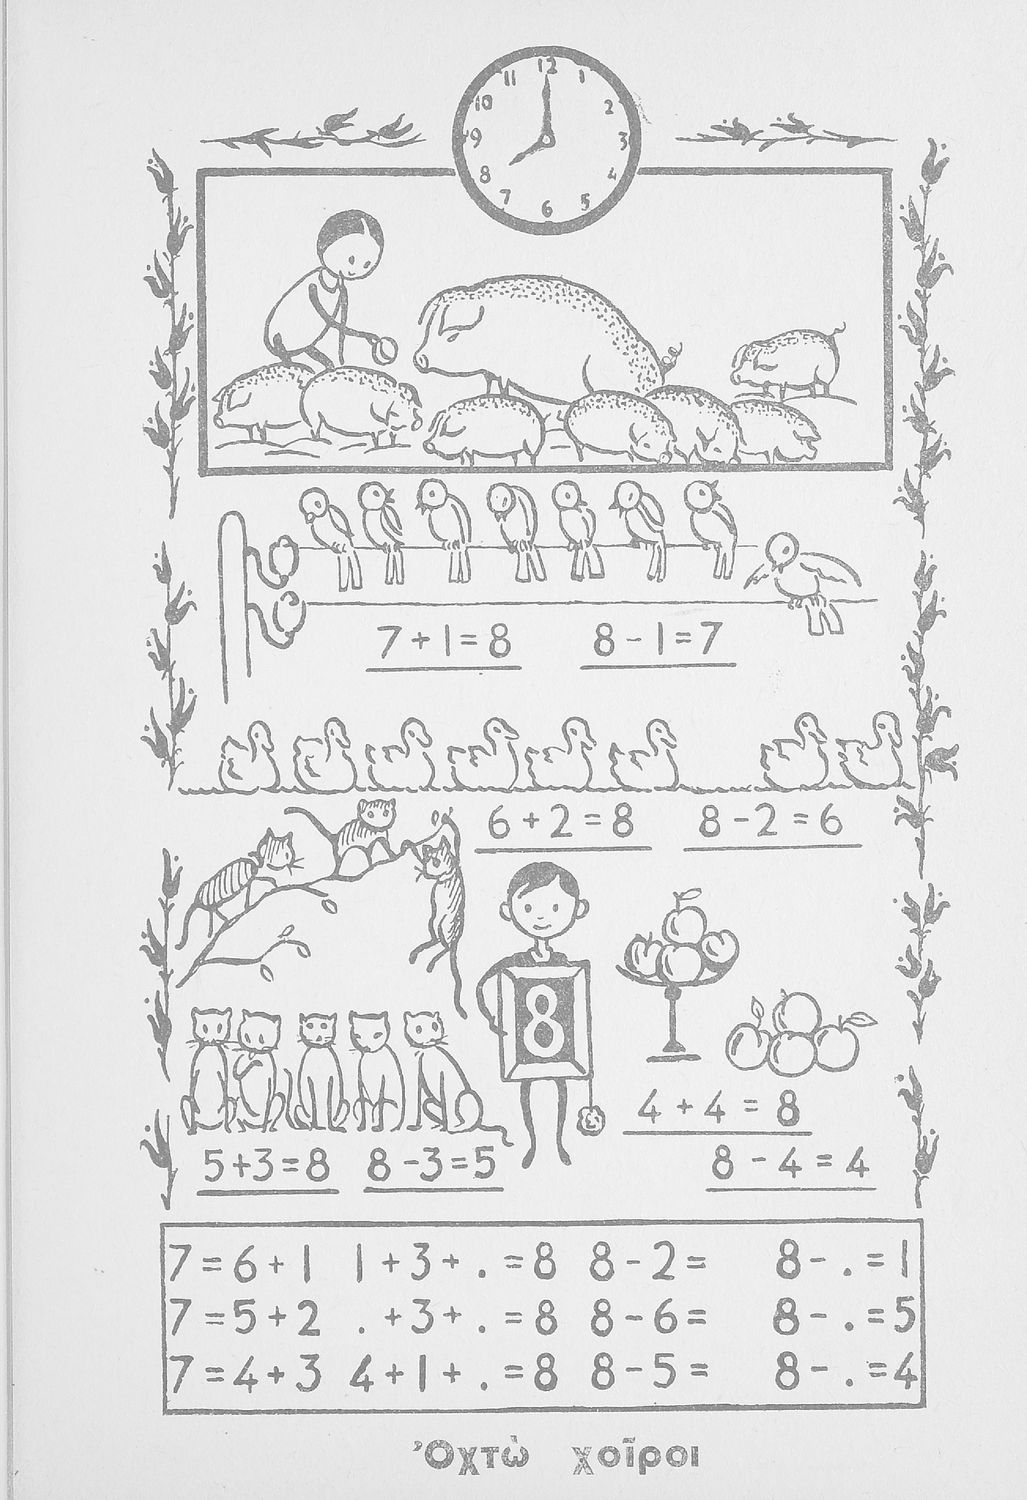 12
11 1
10 2
9 3
8 4
7 5
6
7+1=8 8-1=7
6+2=8 8-2=6
8
4+4=8
5+3=8 8-3=5 8-4=4
7=6+1 1+3+.=8 8-2= 8-.=1
7=5+2 .+3+.=8 8-6= 8-.=5
7=4+3 4+1+.=8 8-5= 8-.=4
Ὀχτὼ χοῖροι